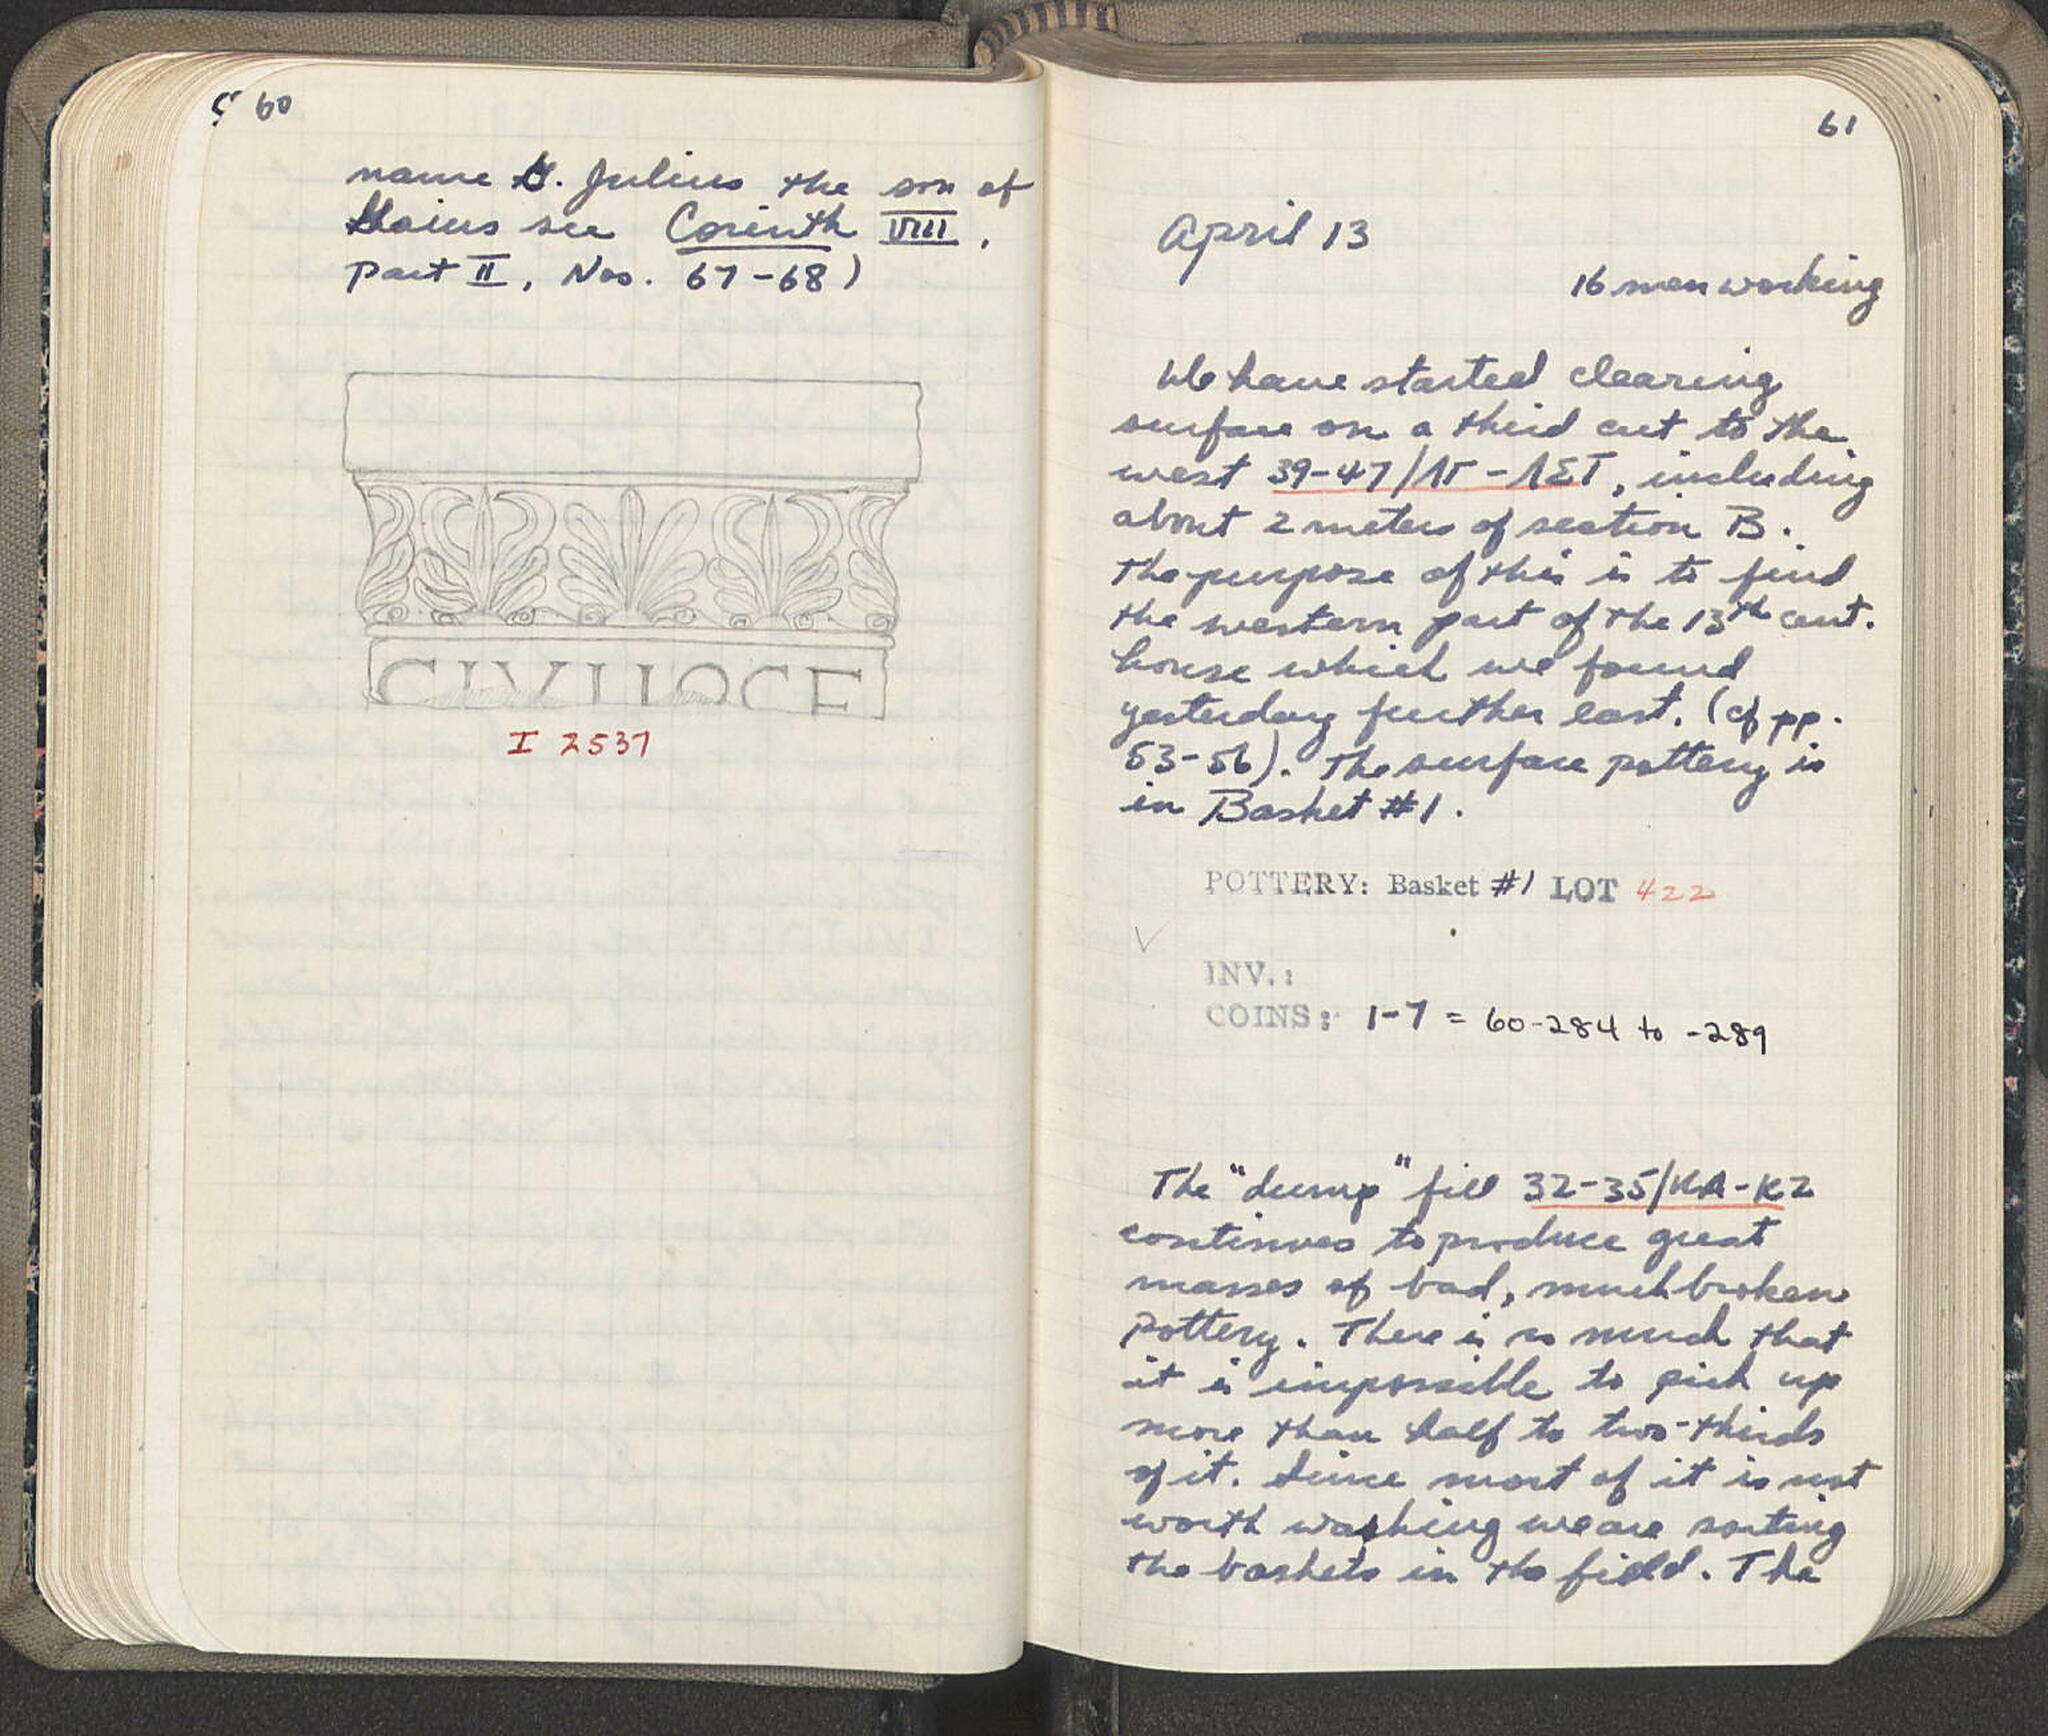 60
name G. Julius the son of
Gaius see Corinth VIII,
part II, Nos. 67-68)
I 2537
61
April 13
16 men working
We have started clearing
surface on a third cut to the
west 39-47/ΛΓ-ΛΣΤ, including
about 2 meters of section B.
The purpose of this is to find
the western part of the 13th cent.
house which we found
yesterday further east. (cf pp.
53-56). The surface pottery is
in Basket #1.
POTTERY: Basket #1 LOT 422
INV.:
COINS: 1-7 = 60-284 to -289
The "dump" fill 32-35/KA-KZ
continues to produce great
masses of bad, much broken
pottery. There is so much that
it is impossible to pick up
more than half to two-thirds
of it. Since most of it is not
worth washing we are sorting
the baskets in the field. The